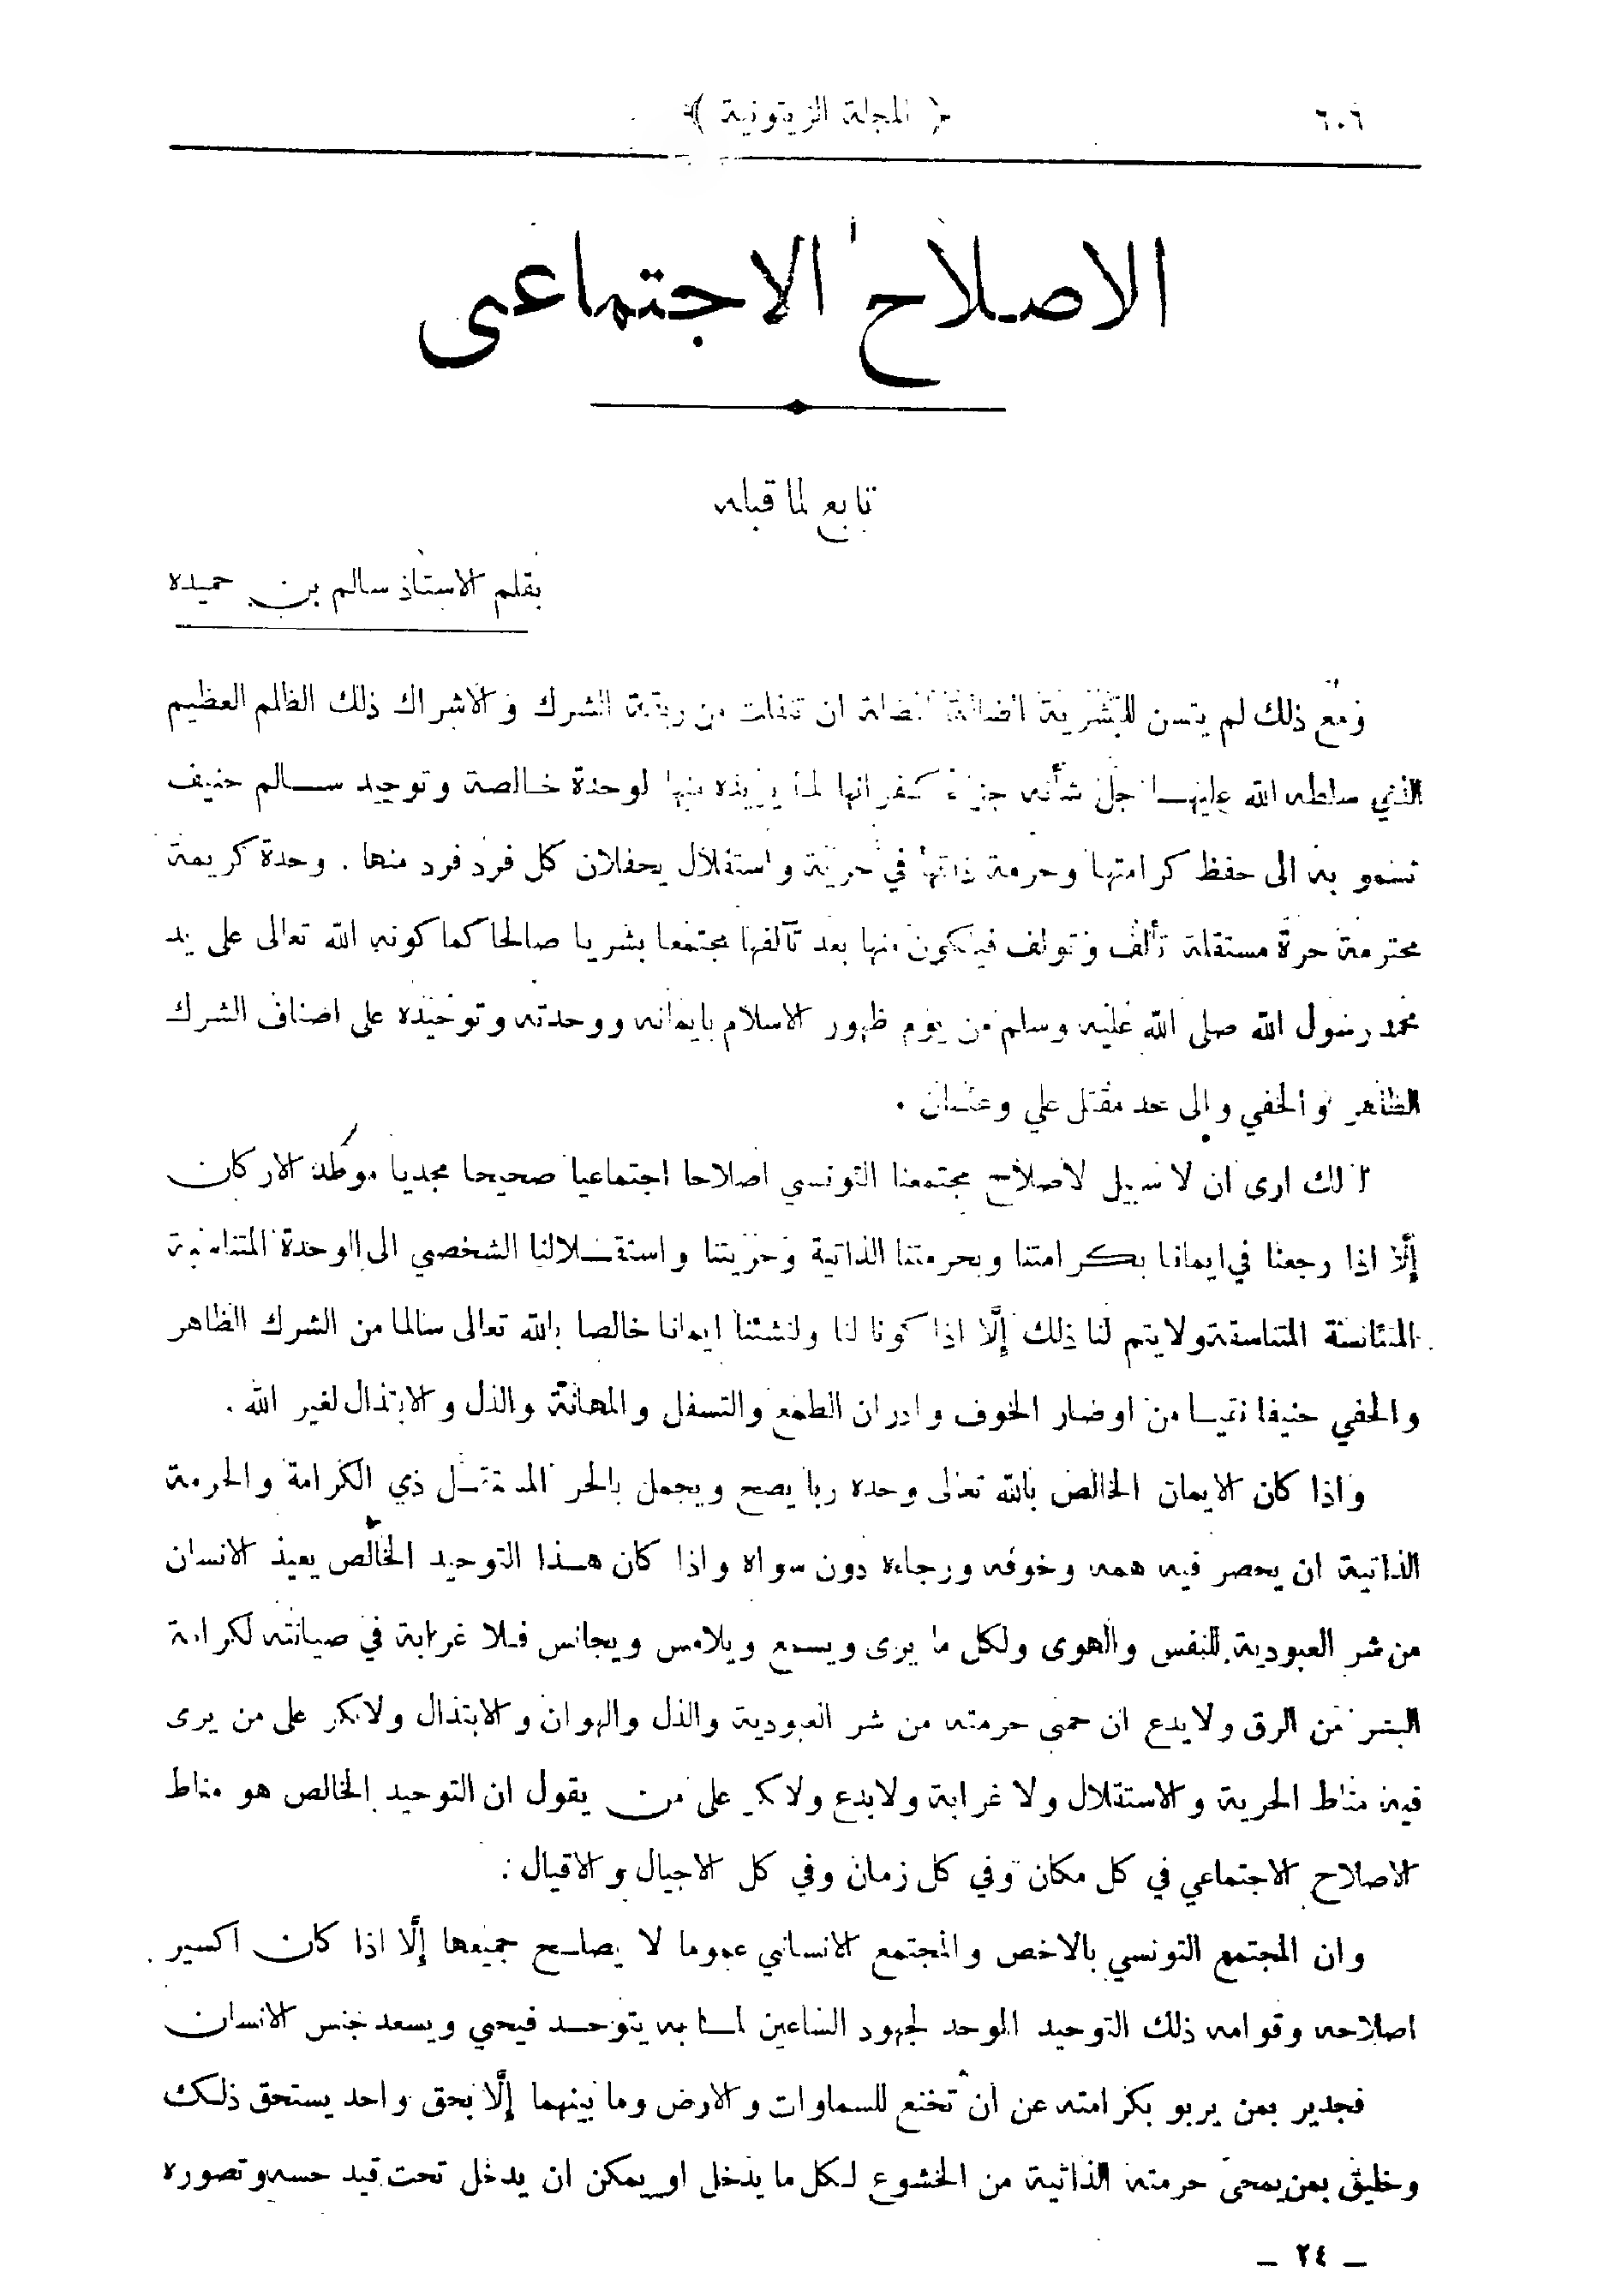 ٦٠٦
﴿ المجلة الزيتونية ﴾
الاصلاح الاجتماعي
تابع لما قبله
بقلم الاستاذ سالم بن حميده
ومع ذلك لم يتسن للبشرية الضالة ان تنفلت من ربقة الشرك والاشراك ذلك الظلم العظيم
الذي سلطه الله عليها جل شأنه جزاء كفرانها لما يريده منها لوحدة خالصة وتوحيد سالم حنيف
تسمو به الى حفظ كرامتها وحرمة ذاتها في حرية واستقلال يحفلان كل فرد فرد منها . وحدة كريمة
محترمة حرة مستقلة تألف وتولف فيتكون منها بعد تآلفها مجتمعا بشريا صالحا كما كونه الله تعالى على يد
محمد رسول الله صلى الله عليه وسلم من يوم ظهور الاسلام بايمانه ووحدته وتوحيده على اصناف الشرك
الظاهر والخفي والى حد مقتل علي وعثمان .
لذلك ارى ان لا سبيل لاصلاح مجتمعنا التونسي اصلاحا اجتماعيا صحيحا مجديا موطد الاركان
إلَّا اذا رجعنا في ايماننا بكرامتنا وبحرمتنا الذاتية وحريتنا واستقلالنا الشخصي الى الوحدة
المتناسقة ولا يتم لنا ذلك إلَّا اذا كونا لنا ولنشئنا ايمانا خالصا بالله تعالى سالما من الشرك الظاهر
والخفي حنيفا نقيا من اوضار الخوف وادران الطمع والتسفل والمهانة والذل والابتذال لغير الله .
واذا كان الايمان الخالص بالله تعالى وحده ربا يصح ويجمل بالحر المستقل ذي الكرامة والحرمة
الذاتية ان يحصر فيه همه وخوفه ورجاءه دون سواه واذا كان هذا التوحيد الخالص يعيذ الانسان
من شر العبودية للنفس والهوى ولكل ما يرى ويسمع ويلامس ويجانس فلا غرابة في صيانته لكرامة
البشر من الرق ولا بدع ان حمى حرمته من شر العبودية والذل والهوان والابتذال ولا نكر على من يرى
فيه مناط الحرية والاستقلال ولا غرابة ولا بدع ولا نكر على من يقول ان التوحيد الخالص هو مناط
الاصلاح الاجتماعي في كل مكان وفي كل زمان وفي كل الاجيال والاقيال .
وان المجتمع التونسي بالاخص والمجتمع الانساني عموما لا يصلح جميعها إلَّا اذا كان اكسير
اصلاحه وقوامه ذلك التوحيد الموحد لجهود الساعين لما به يتوحد فيحيى ويسعد جنس الانسان
فجدير بمن يربو بكرامته عن ان تخنع للسماوات والارض وما بينهما إلَّا بحق واحد يستحق ذلك
وخليق بمن يمحي حرمته الذاتية من الخشوع لكل ما يدخل او يمكن ان يدخل تحت قيد حسه وتصوره
– ٢٤ –